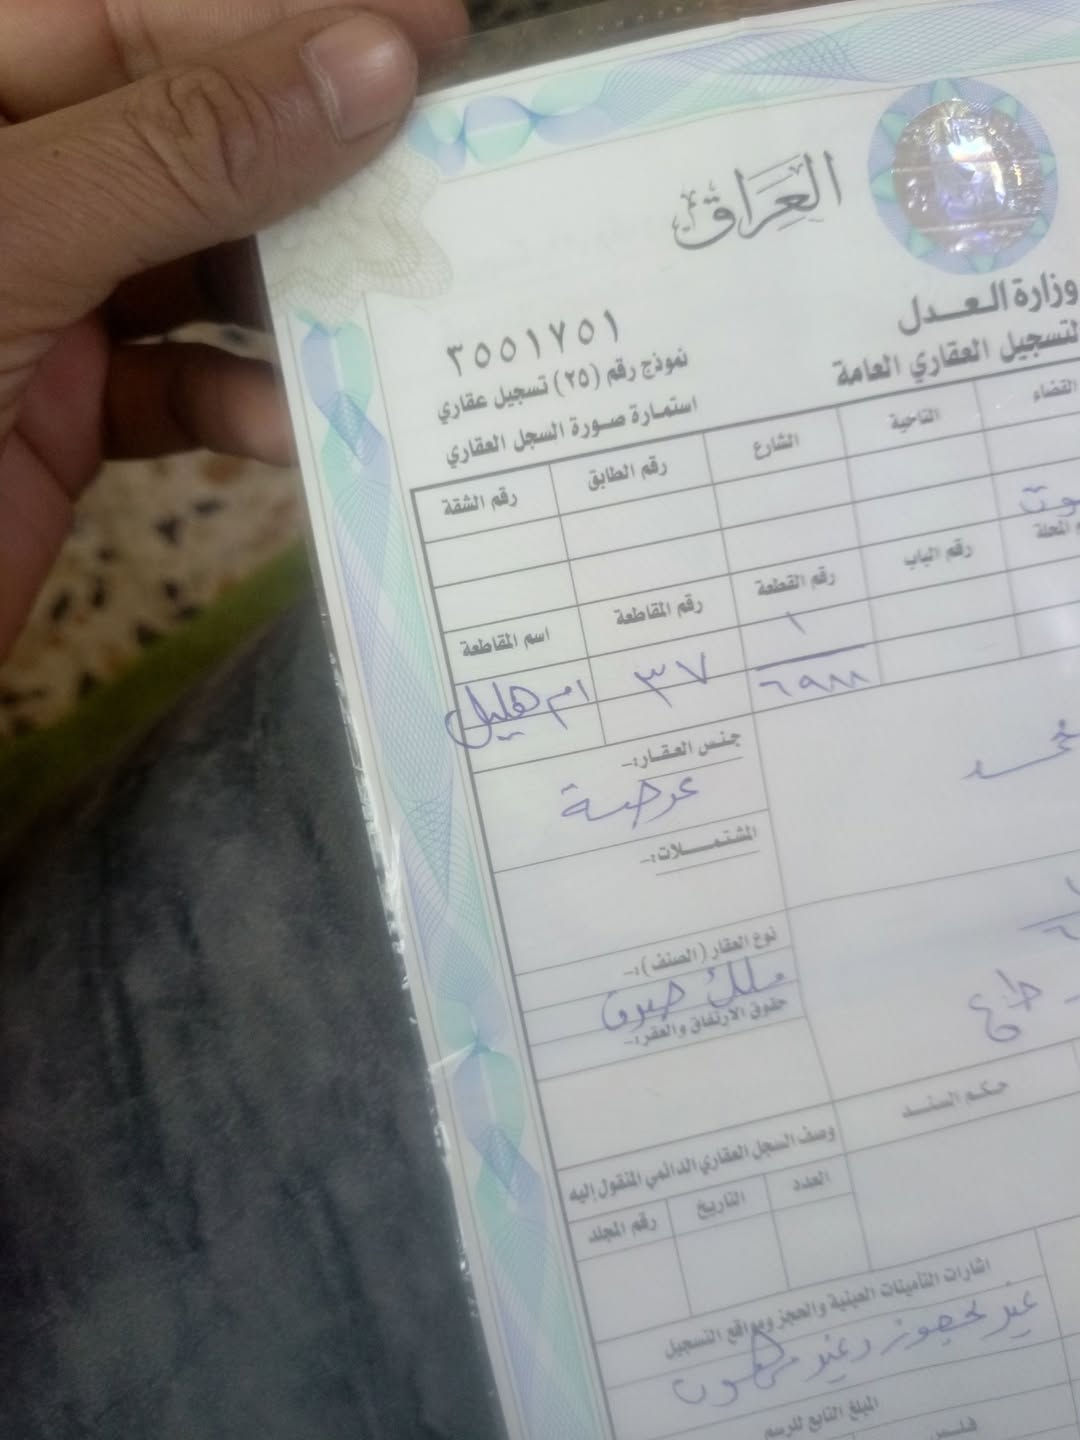 العراق
وزارة العدل
التسجيل العقاري العامة
٣٥٥١٧٥١
نموذج رقم (٢٥) تسجيل عقاري
استمارة صورة السجل العقاري
القضاء الناحية الشارع رقم الطابق رقم الشقة
المحلة رقم الباب رقم القطعة رقم المقاطعة اسم المقاطعة
١
٦٩٨٨ ٣٧ ام هليل
جنس العقار:-
عرصة
المشتملات:-
نوع العقار (الصنف):-
ملك صرف
حقوق الارتفاق والعقر:-
حكم السند
وصف السجل العقاري الدائمي المنقول إليه
العدد التاريخ رقم المجلد
اشارات التأمينات العينية والحجز ومواقع التسجيل
غير محجوز وغير مرهون
المبلغ التابع للرسم
فلس